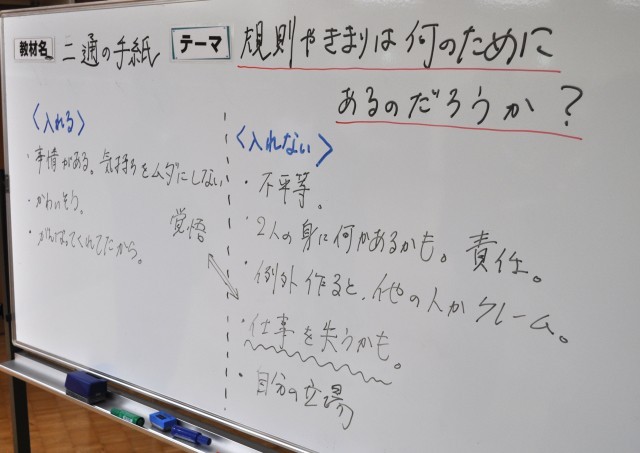 教材名 二通の手紙 テーマ 規則やきまりは何のために
あるのだろうか?
〈入れる〉
・事情がある。気持ちをムダにしない
・かわいそう。
・がんばってくれてたから。
覚悟
〈入れない〉
・不平等。
・2人の身に何かあるかも。責任。
・例外作ると、他の人がクレーム。
・仕事を失うかも。
・自分の立場